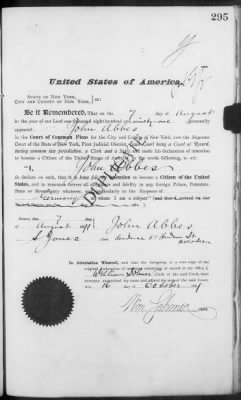 295
United States of America.
STATE OF NEW YORK,
CITY AND COUNTY OF NEW YORK, ss:
Be it Remembered, That on the 7 day of August
in the year of our Lord one thousand eight hundred and ninety-one personally
appeared John Abbes
in the Court of Common Pleas for the City and County of New York, now the Supreme
Court of the State of New York, First Judicial District, said Court being a Court of Record,
having common law jurisdiction, a Clerk and a Seal, and made his declaration of intention
to become a Citizen of the United States of America, in the words following, to wit:
"I, John Abbes
do declare on oath, that it is bona fide my intention to become a Citizen of the United
States, and to renounce forever all allegiance and fidelity to any foreign Prince, Potentate,
State or Sovereignty whatever, and particularly to the Emperor of
Germany of whom I am a subject
DUPLICATE
Sworn, this 7 day of
August 1891 John Abbes
S Jones
Hudson St
Hoboken
In Attestation Whereof, and that the foregoing is a true copy of the
original declaration of intention remaining of record in the office, I,
William Sohmer Clerk of the said Court, have
hereunto subscribed my name and affixed the seal of the said Court,
this 16 day of October
Wm Sohmer Clerk